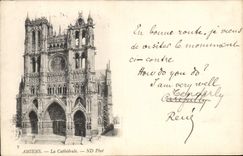 En bonne route, je viens
de visiter le monument
ci-contre
How do you do?
I am very well
René
AMIENS. — La Cathédrale. — ND Phot